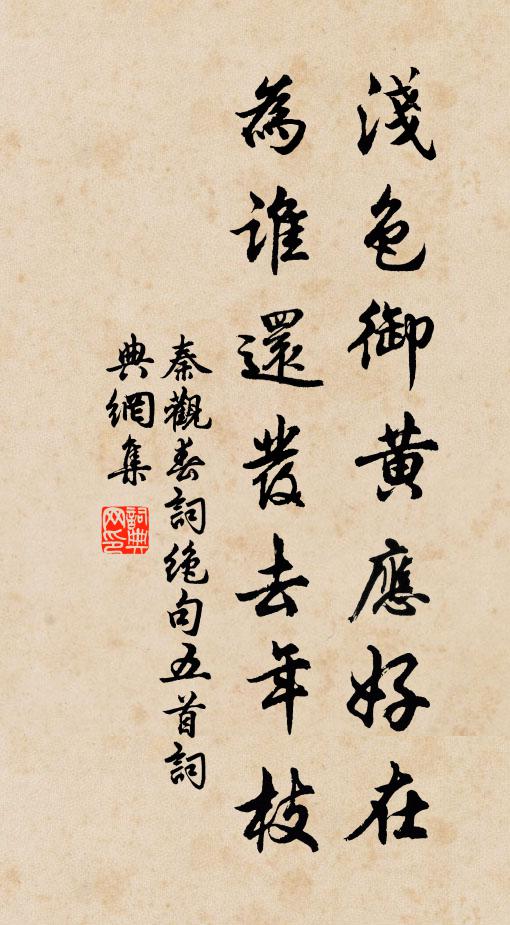 淺色御黃應好在
為誰還發去年枝
秦觀春詞絶句五首詞
典網集
詞典網印